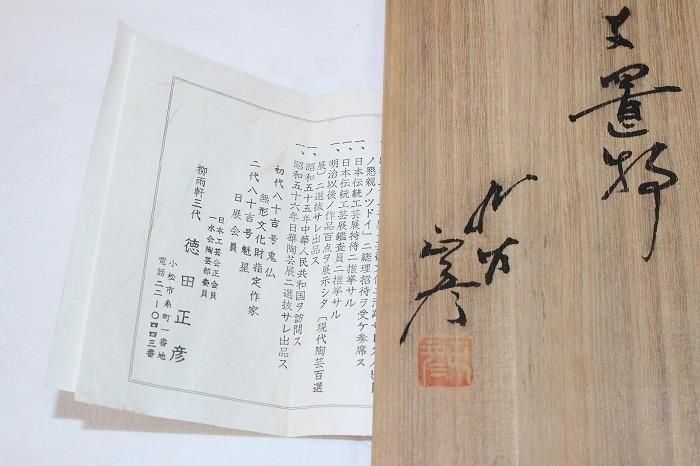 支置物
八十吉
正彦
ノ懇親ノツドイ」ニ総理招待ヲ受ケ参席ス
一、日本伝統工芸展特待ニ推挙サル
一、日本伝統工芸展鑑査員ニ推挙サル
一、明治以後ノ作品百点ヲ展示シタ〔現代陶芸百選
展〕ニ選抜サレ出品ス
一、昭和五十五年中華人民共和国ヲ訪問ス
一、昭和五十六年日華陶芸展ニ選抜サレ出品ス
初代八十吉号鬼仏
無形文化財指定作家
二代八十吉号魁星
日展会員
日本工芸会正会員
一水会陶芸部委員
柳雨軒三代 徳田正彦
小松市糸町一番地
電話二二－〇四四三番